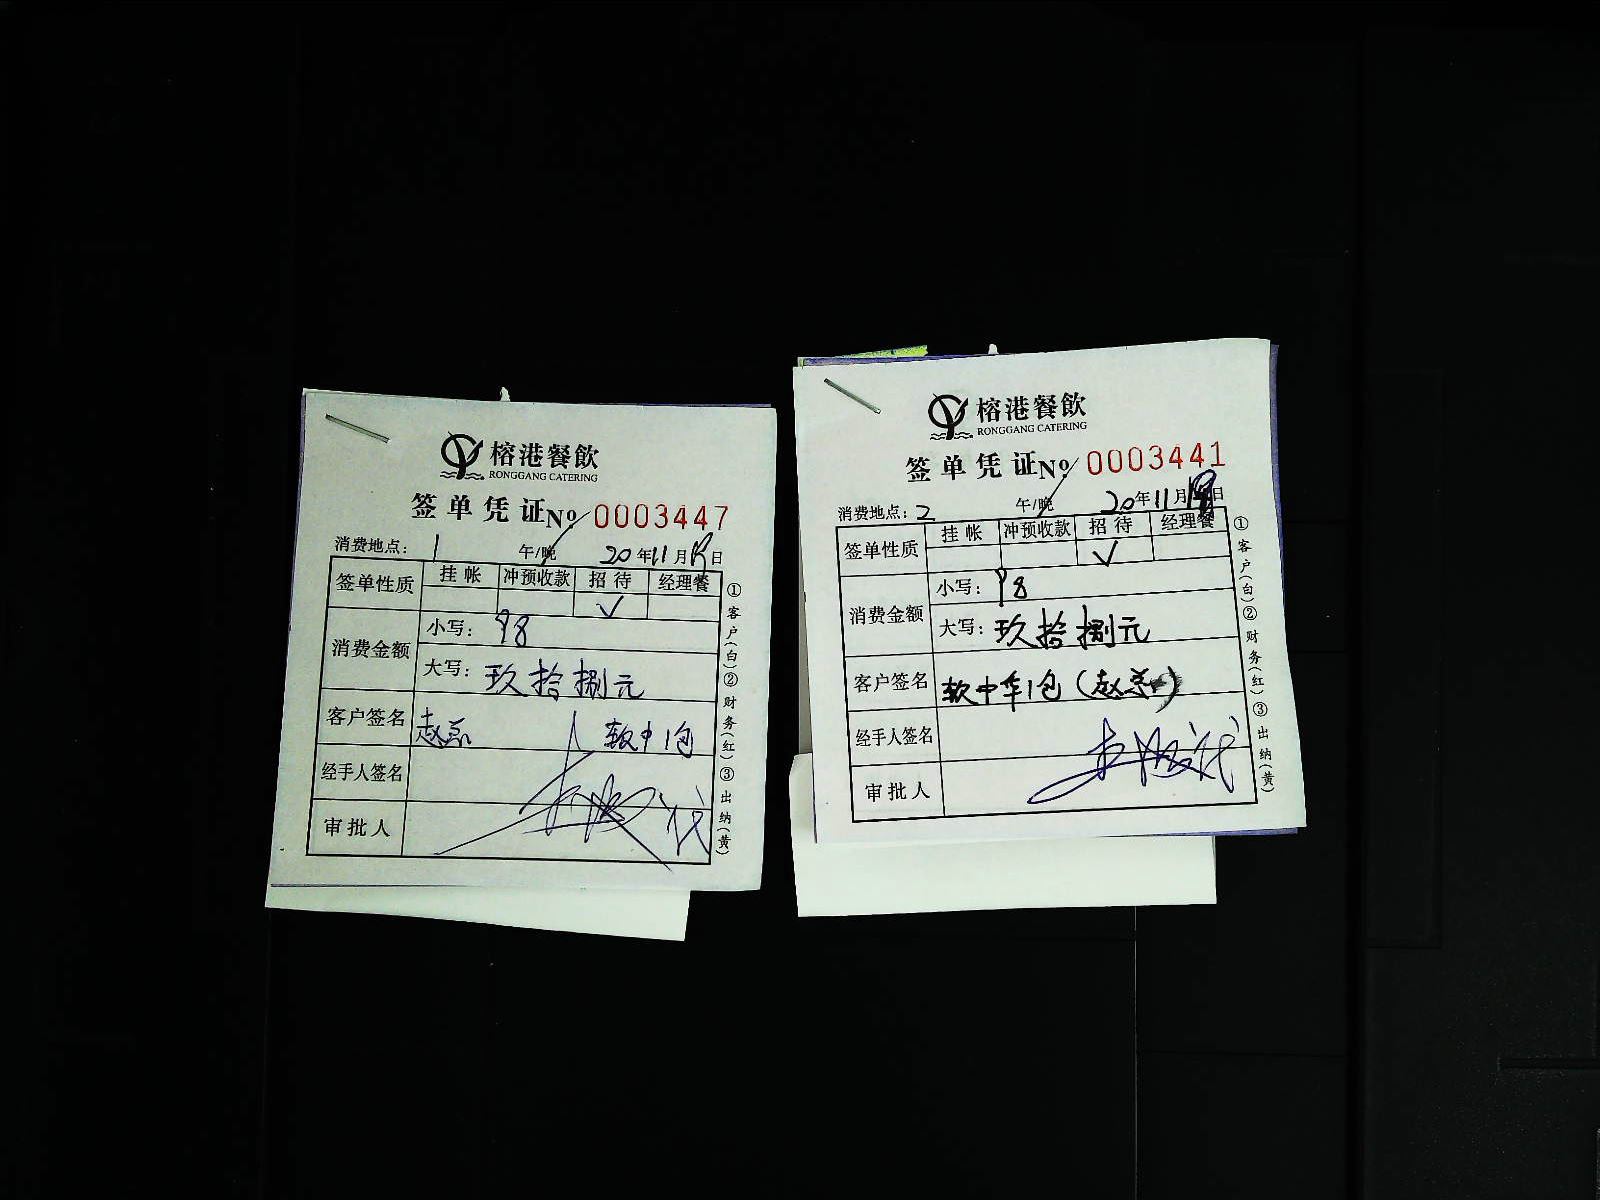 榕港餐飲
RONGGANG CATERING
签单凭证 No 0003447
消费地点: 1 午/晚 20年11月19日
签单性质 挂帐 冲预收款 招待 经理餐
✓
消费金额 小写: 98
大写: 玖拾捌元
客户签名 赵磊 软中1包
经手人签名
审批人 代
①客户(白)②财务(红)③出纳(黄)
榕港餐飲
RONGGANG CATERING
签单凭证 No 0003441
消费地点: 2 午/晚 20年11月日
签单性质 挂帐 冲预收款 招待 经理餐
✓
消费金额 小写: 98
大写: 玖拾捌元
客户签名 软中华1包(赵
经手人签名
审批人 代
①客户(白)②财务(红)③出纳(黄)